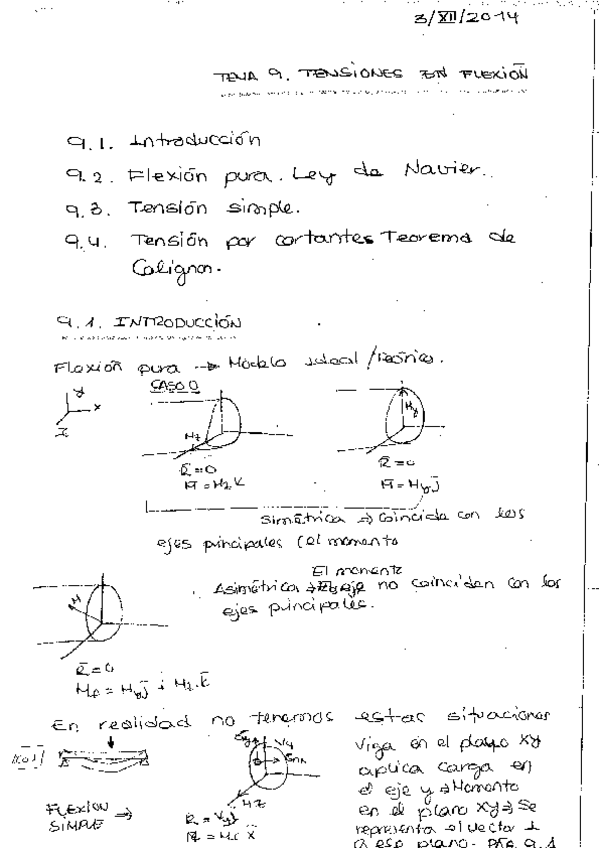 3/XII/2014
TEMA 9. TENSIONES EN FLEXIÓN
9.1. Introducción
9.2. Flexión pura. Ley de Navier.
9.3. Tensión simple.
9.4. Tensión por cortantes Teorema de
Colignon.
9.1. INTRODUCCIÓN
Flexión pura → Modelo ideal / teórico.
CASO
y
x
z
Mz
My
R̄ = 0
M̄ = Mz k̄
R̄ = 0
M̄ = My j̄
Simétrica ⇒ Coincide con los
ejes principales (el momento
El momento
Asimétrica ⇒ no coinciden con los
ejes principales.
M
R̄ = 0
Mf = My j̄ + Mz k̄
En realidad no tenemos estas situaciones
Viga en el plano xy
aplica carga en
el eje y ⇒ Momento
en el plano xy ⇒ Se
representa el vector ⊥
a ese plano. PÁG 9.1
Vy
Mz
FLEXIÓN ⇒
SIMPLE
R̄ = Vy j̄